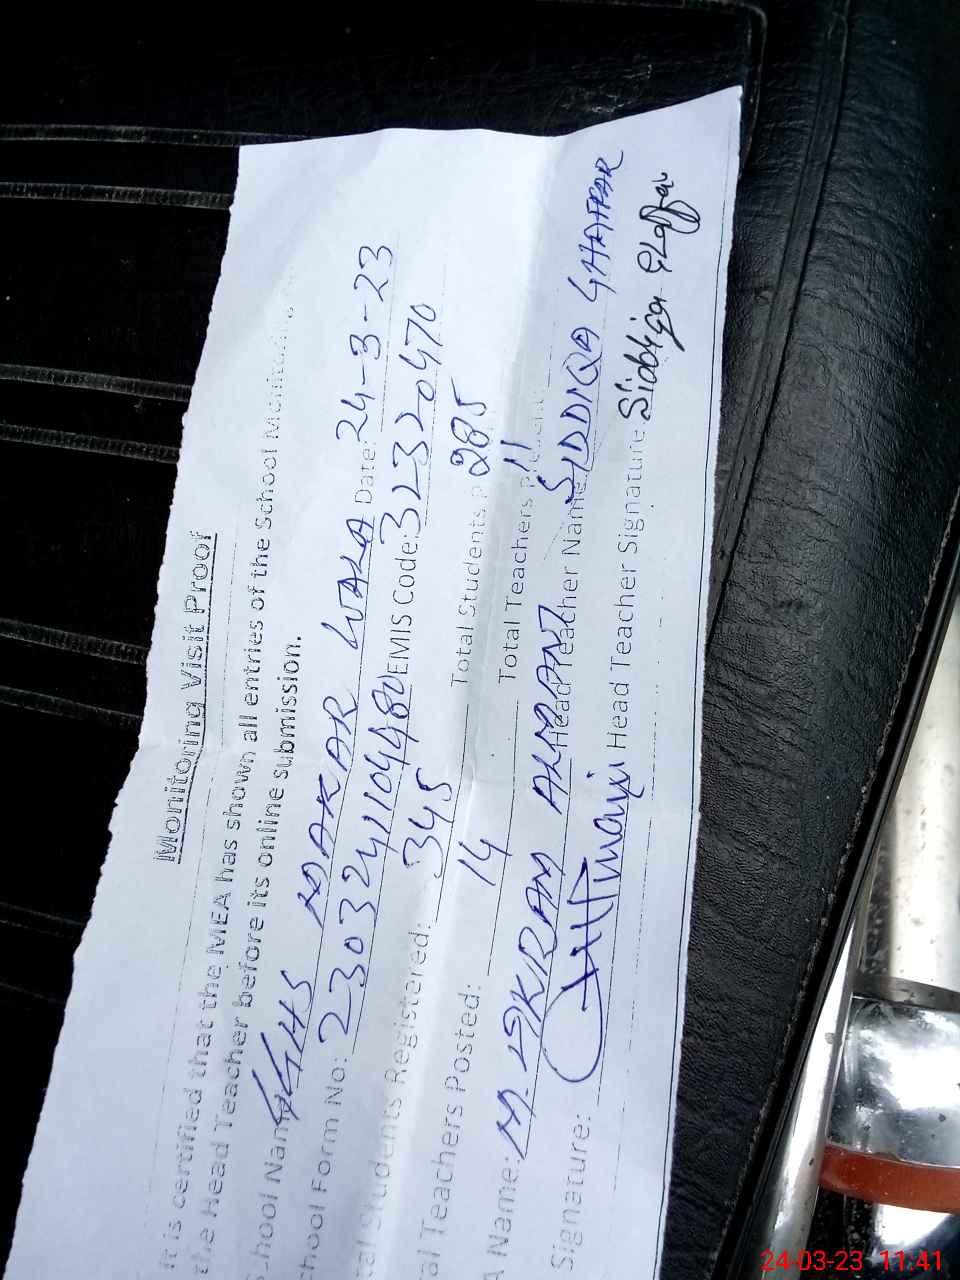 Monitoring Visit Proof
It is certified that the MEA has shown all entries of the School Monitoring
the Head Teacher before its online submission.
School Name: GGHS MAKAR WALA Date: 24-3-23
chool Form No: 2303241104480 EMIS Code: 32320470
tal Students Registered: 345 Total Students p 285
tal Teachers Posted: 14 Total Teachers p 11
A Name: M. IKRAM Head Teacher Name: SIDDIQA GHAFFAR
Signature: Head Teacher Signature: Siddiqa Ghaffar
24-03-23 11:41